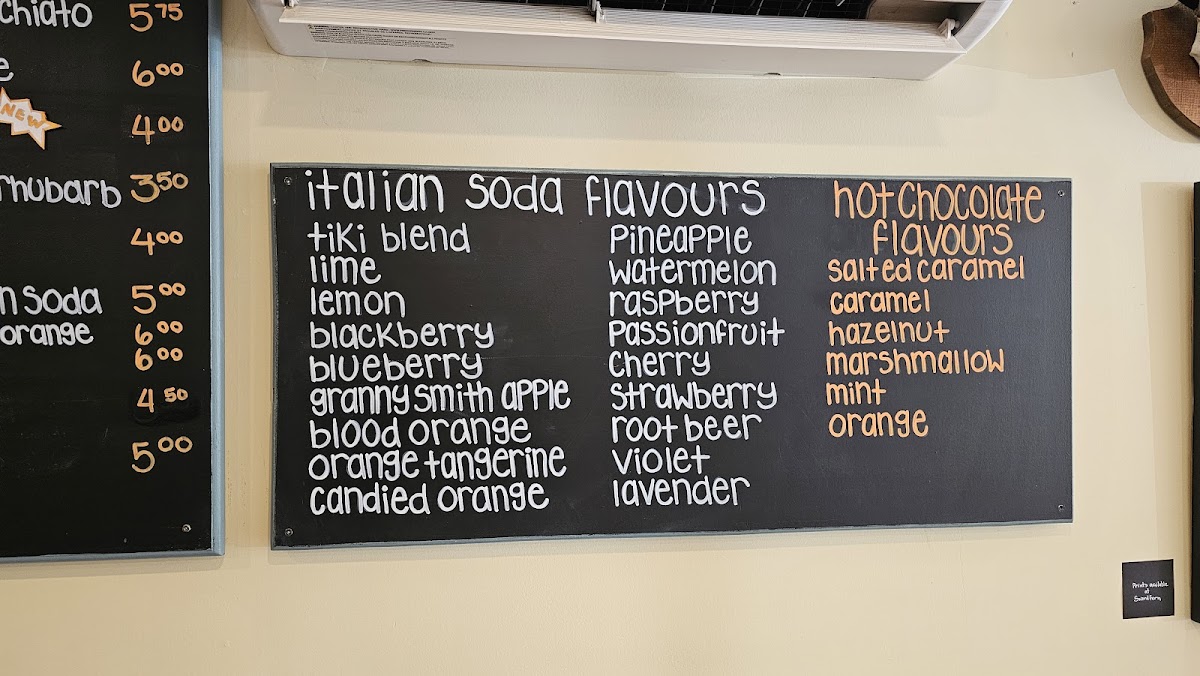 chiato 5 75
e 6 00
NEW 4 00
rhubarb 3 50
4 00
n soda 5 00
orange 6 00
6 00
4 50
5 00
italian soda flavours
tiki blend
lime
lemon
blackberry
blueberry
granny smith apple
blood orange
orange tangerine
candied orange
pineapple
watermelon
raspberry
passionfruit
cherry
strawberry
root beer
violet
lavender
hot chocolate
flavours
salted caramel
caramel
hazelnut
marshmallow
mint
orange
Prints available
at